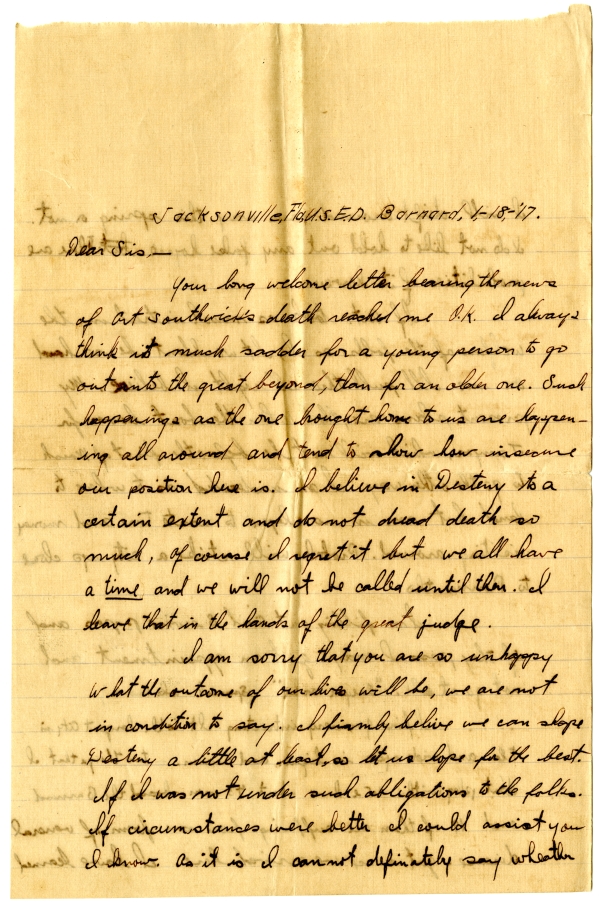 Jacksonville, Fla, U.S.E.D. Barnard, 1-18,-'17.
Dear Sis,—
Your long welcome letter bearing the news
of Art Southwick's death reached me O.K. I always
think it much sadder for a young person to go
out into the great beyond, than for an older one. Such
happenings as the one brought home to us are happen-
ing all around and tend to show how insecure
our position here is. I believe in Desteny to a
certain extent and do not dread death so
much, of course I regret it but we all have
a time and we will not be called until then. I
leave that in the hands of the great judge.
I am sorry that you are so unhappy
What the outcome of our lives will be, we are not
in condition to say. I firmly belive we can shape
Desteny a little at least, so let us hope for the best.
If I was not under such obligations to the folks.
If circumstances were better I could assist you
I know. As it is I can not definately say wheather